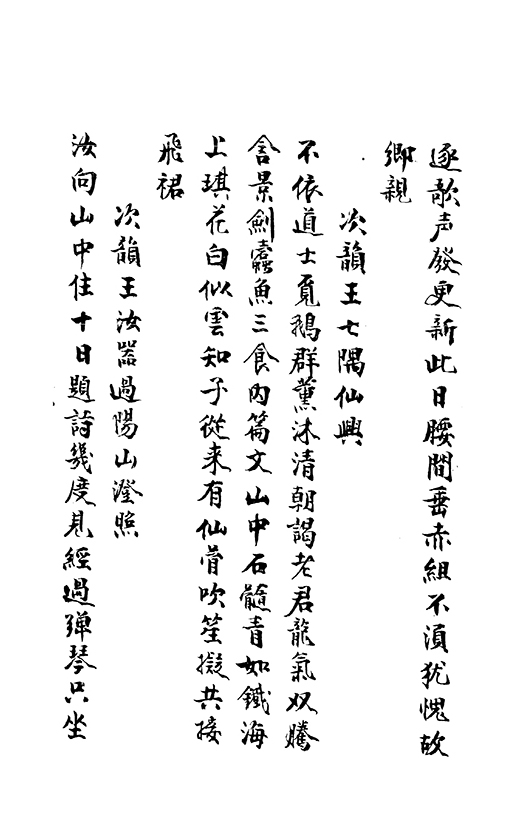 逐歌声發更新此日腰間垂赤組不須犹愧故
鄉親
次韻王七隅仙興
不依道士覓鵝群薰沐清朝謁老君龍氣双騰
含景劍蠹魚三食內篇文山中石髓青如鐵海
上琪花白似雲知子從来有仙骨吹笙擬共接
飛裙
次韻王汝器過陽山澄照
汝向山中住十日題詩幾度見經過彈琴只坐